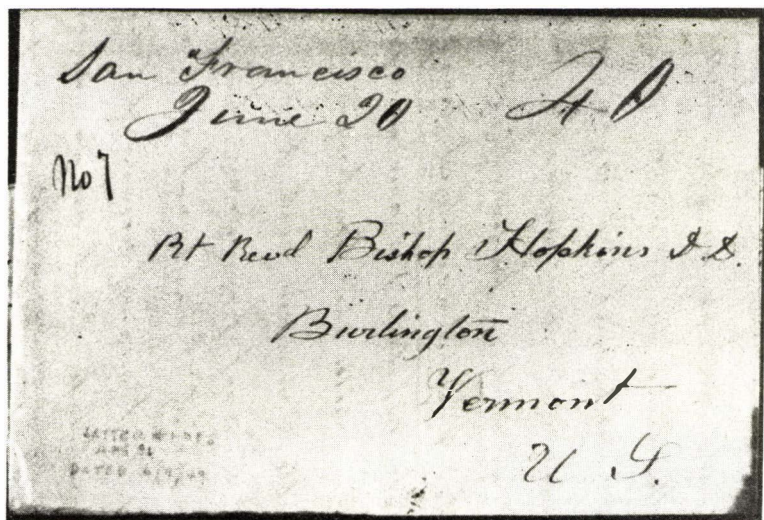 San Francisco
June 20 40
No 7
Rt Revd Bishop Hopkins D.D.
Burlington
Vermont
U S.
DATED